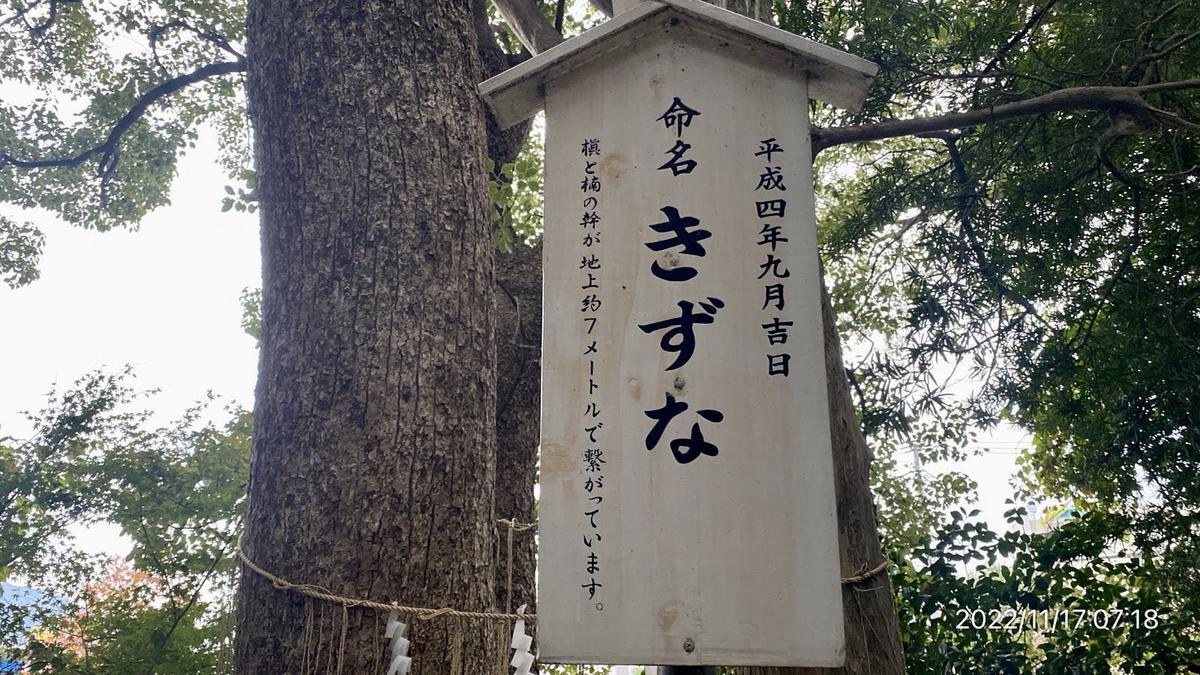 平成四年九月吉日
命名 きずな
槇と楠の幹が地上約7メートルで繋がっています。
2022/11/17 07:18